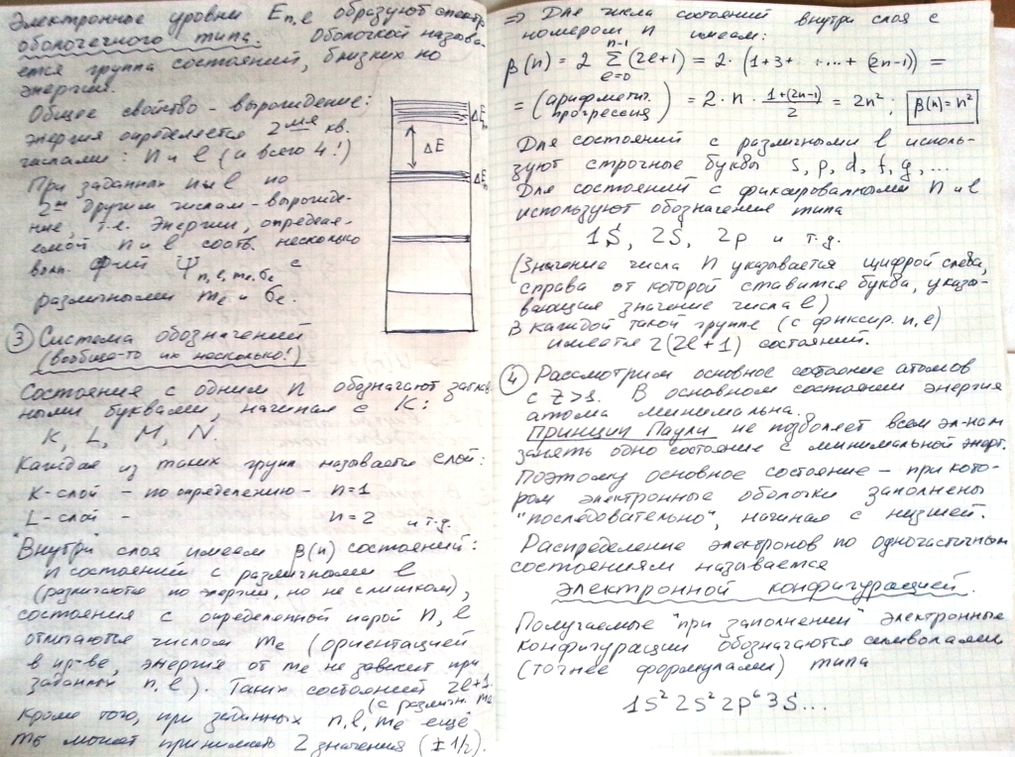 Электронные уровни E n,l образуют спектр
оболочечного типа. Оболочкой называ-
ется группа состояний, близких по
энергии.
Общее свойство - вырождение:
энергия определяется 2мя кв.
числами: n и l (а всего 4!)
При заданных n и l по
2м другим числам - вырожде-
ние, т.е. энергии, определя-
емой n и l соотв. несколько
волн. ф-ций Ψ n, l, me, бe с
различными me и бe.
ΔE n
ΔE
ΔE n
③ Система обозначений
(вообще-то их несколько!)
Состояния с одним n обозначают заглав-
ными буквами, начиная с K:
K, L, M, N.
Каждая из таких групп называется слой:
K-слой - по определению - n=1
L-слой - n=2 и т.д.
"Внутри" слоя имеем β(n) состояний:
n состояний с различными l
(различаются по энергии, но не слишком),
состояния с определенной парой n, l
отличаются числом me (ориентацией
в пр-ве, энергия от me не зависит при
заданной n, l). Таких состояний 2l+1
(с различн. me
Кроме того, при заданных n, l, me ещё
mб может принимать 2 значения (±1/2).
⇒ Для числа состояний внутри слоя с
номером n имеем:
β(n) = 2 ∑ n-1 l=0 (2l+1) = 2·(1+3+ ....+ (2n-1)) =
= (арифметич. прогрессия) = 2·n·(1+(2n-1))/2 = 2n²; β(n)=n²
Для состояний с различными l исполь-
зуют строчные буквы s, p, d, f, g, ...
Для состояний с фиксированными n и l
используют обозначение типа
1S, 2S, 2p и т.д.
(Значение числа n указывается цифрой слева,
справа от которой ставится буква, указы-
вающая значение числа l)
В каждой такой группе (с фиксир. n, l)
имеется 2(2l+1) состояний.
④ Рассмотрим основное состояние атомов
с Z>1. В основном состоянии энергия
атома минимальна.
Принцип Паули не позволяет всем эл-нам
занять одно состояние с минимальной энерг.
Поэтому основное состояние - при кото-
ром электронные оболочки заполнены
"последовательно", начиная с низшей.
Распределение электронов по одночастичным
состояниям называется
электронной конфигурацией.
Получаемые "при заполнении" электронные
конфигурации обозначаются символами
(точнее формулами) типа
1S² 2S² 2p⁶ 3S...